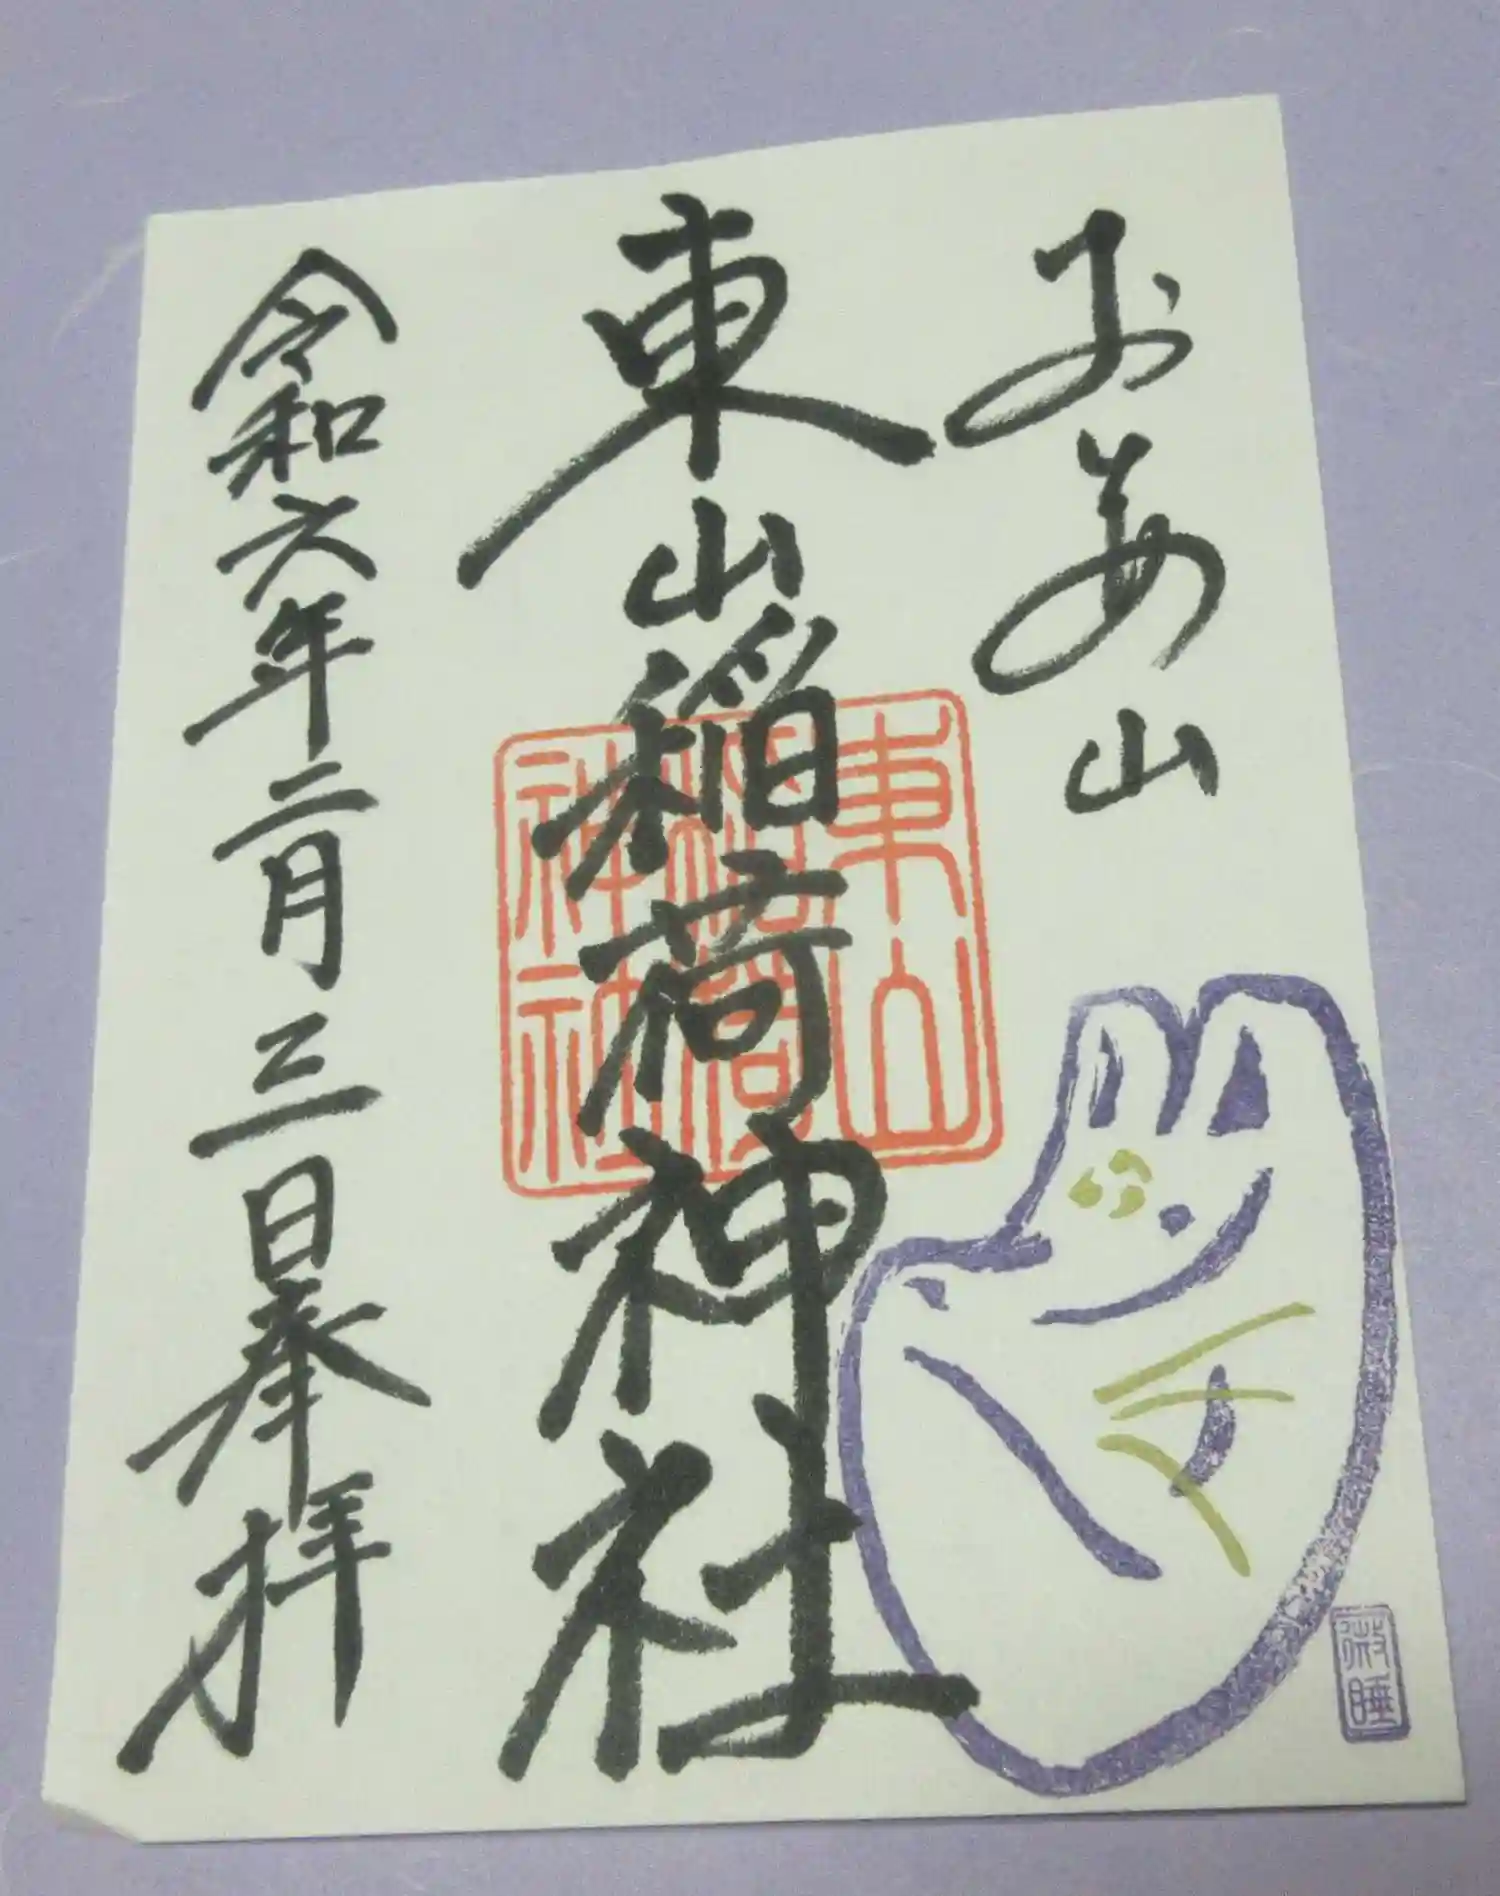 お姜山
東山稲荷神社
東山
稲荷
神社
令和六年二月三日奉拝
微睡